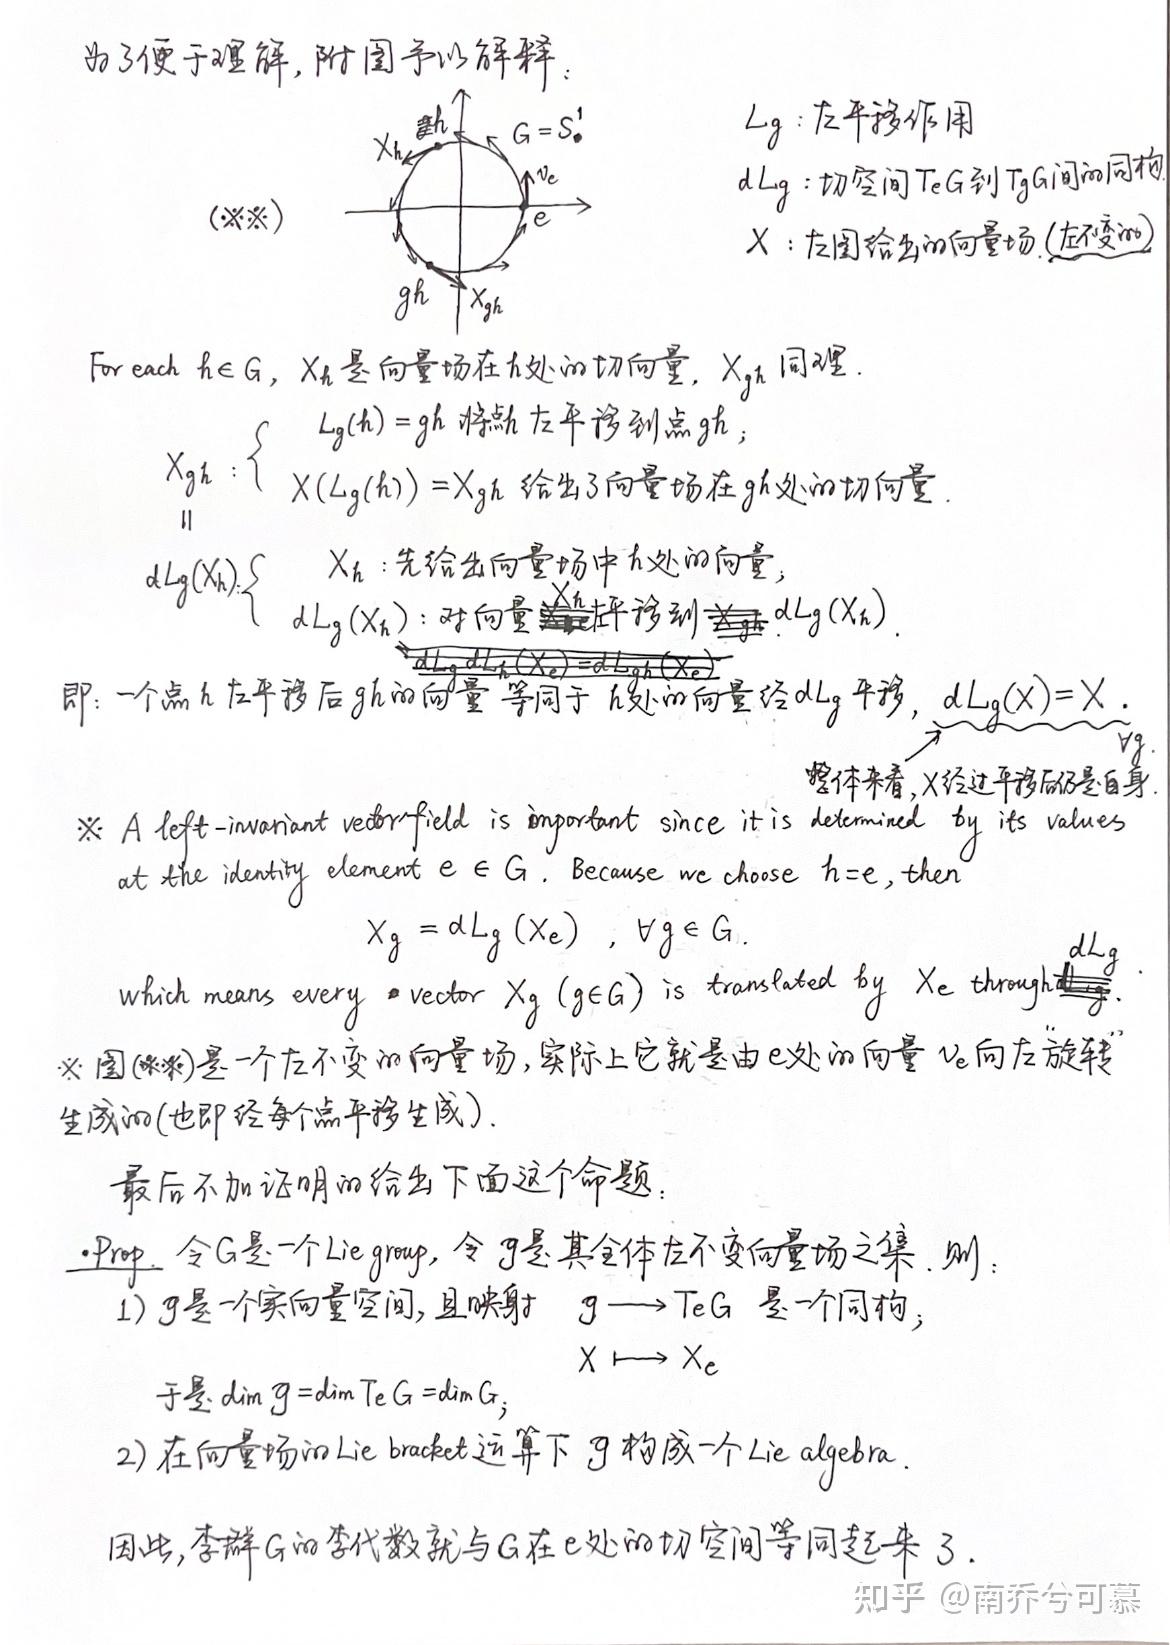 为了便于理解,附图予以解释:
h
X_h
G = S¹
v_e
(※※)
e
gh
X_gh
Lg : 左平移作用
dLg : 切空间TeG到TgG间的同构.
X : 左图给出的向量场.(左不变的)
For each h∈G, X_h是向量场在h处的切向量, X_gh同理.
X_gh : { Lg(h) = gh 将点h左平移到点gh;
X(Lg(h)) = X_gh 给出了向量场在gh处的切向量.
||
dLg(X_h): { X_h : 先给出向量场中h处的向量;
dLg(X_h) : 对向量X_h左平移到 dLg(X_h).
即: 一个点h左平移后gh的向量等同于h处的向量经dLg平移, dLg(X)=X. ∀g.
整体来看,X经过平移后仍是自身.
※ A left-invariant vector field is important since it is determined by its values
at the identity element e ∈ G. Because we choose h=e, then
X_g = dLg(X_e) , ∀g∈G.
which means every vector X_g (g∈G) is translated by X_e through dLg.
※ 图(※※)是一个左不变的向量场,实际上它就是由e处的向量 v_e向左“旋转”
生成的(也即经每个点平移生成).
最后不加证明的给出下面这个命题:
·Prop. 令G是一个Lie group, 令g是其全体左不变向量场之集.则:
1) g是一个实向量空间,且映射 g ⟶ TeG 是一个同构;
X ⟼ X_e
于是 dim g = dim TeG = dim G;
2) 在向量场的Lie bracket运算下 g 构成一个Lie algebra.
因此,李群G的李代数就与G在e处的切空间等同起来了.
知乎 @南乔兮可慕